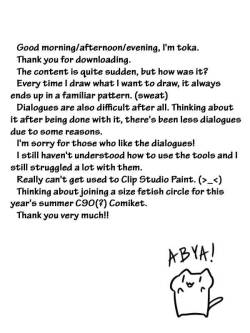 Good morning/afternoon/evening, I'm toka.
Thank you for downloading.
The content is quite sudden, but how was it?
Every time I draw what I want to draw, it always
ends up in a familiar pattern. (sweat)
Dialogues are also difficult after all. Thinking about
it after being done with it, there's been less dialogues
due to some reasons.
I'm sorry for those who like the dialogues!
I still haven't understood how to use the tools and I
still struggled a lot with them.
Really can't get used to Clip Studio Paint. (>_<)
Thinking about joining a size fetish circle for this
year's summer C90(?) Comiket.
Thank you very much!!
ABYA!